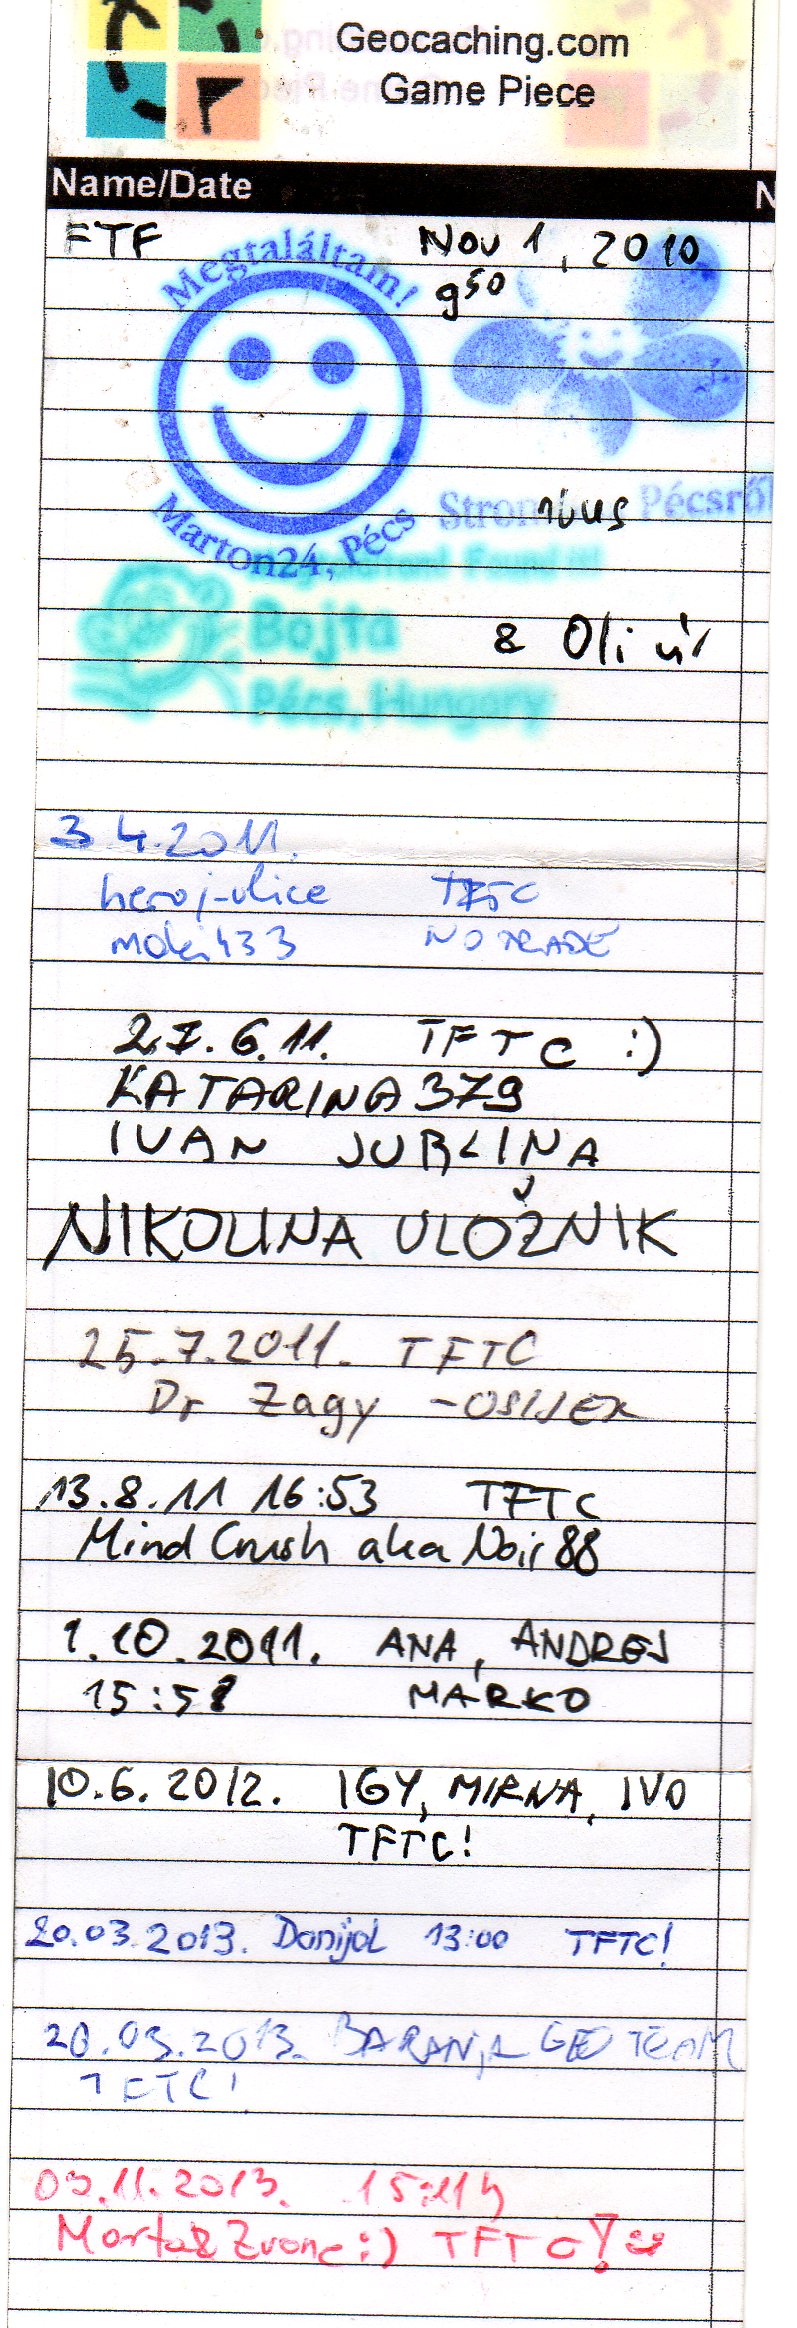 Geocaching.com
Game Piece
Name/Date
N
FTF Nov 1, 2010
9⁵⁰
Megtaláltam!
Márton24, Pécs
Strombus Pécsről
Bojta
& Oli úr
Pécs, Hungary
3 4.2011.
heroj-ulice TFTC
moki433 NO TRADE
27.6.11. TFTC :)
KATARINA379
IVAN JURLINA
NIKOLINA ULOŽNIK
25.7.2011. TFTC
Dr Zagy -OSIJEK
13.8.11 16:53 TFTC
Mind Crush aka Noir88
1.10.2011. ANA, ANDREJ
15:58 MARKO
10.6.2012. IGY, MIRNA, IVO
TFTC!
20.03.2013. Danijel 13:00 TFTC!
20.03.2013. BARANJA GEO TEAM
TFTC!
09.11.2013. 15:21h
Zvone:) TFTC!